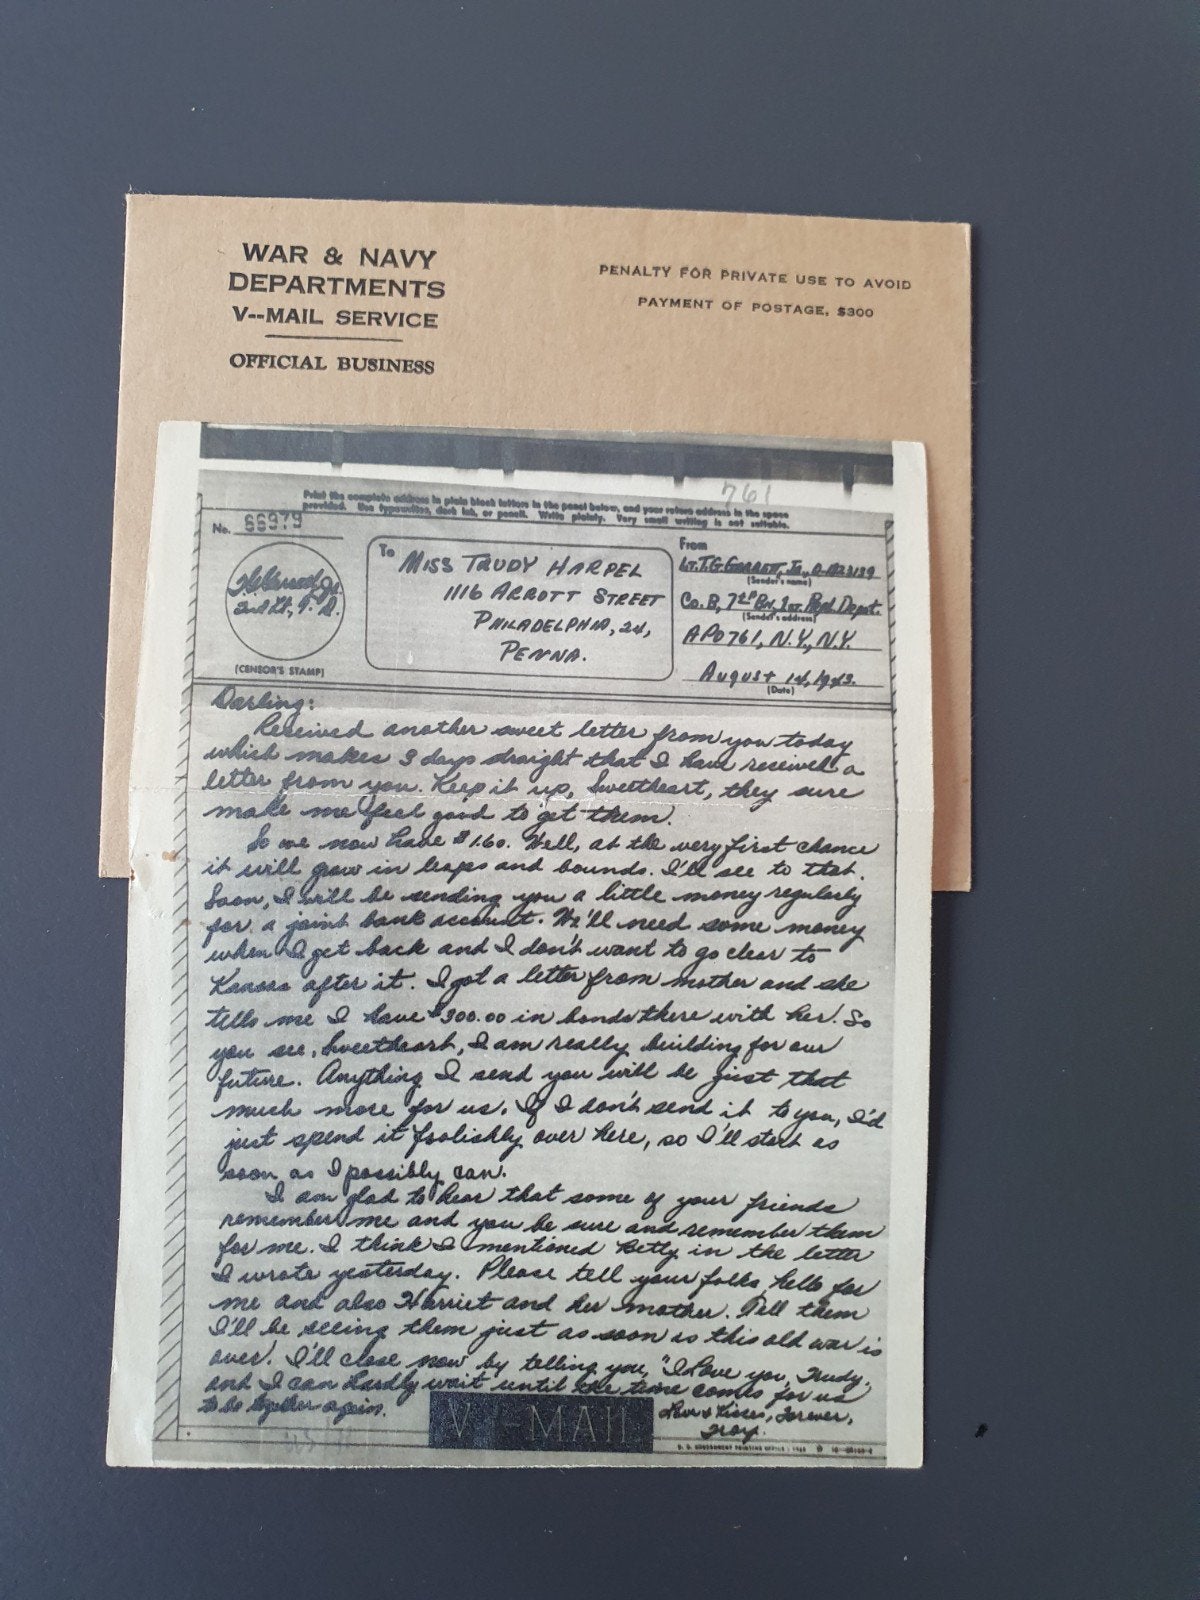 WAR & NAVY
DEPARTMENTS
V--MAIL SERVICE
OFFICIAL BUSINESS
PENALTY FOR PRIVATE USE TO AVOID
PAYMENT OF POSTAGE, $300
761
Print the complete address in plain block letters in the panel below, and your return address in the space
provided. Use typewriter, dark ink, or pencil. Write plainly. Very small writing is not suitable.
No. 66979
2nd Lt.,
(CENSOR'S STAMP)
To
MISS TRUDY HARPEL
1116 ARROTT STREET
PHILADELPHIA, 24,
PENNA.
From
LT. T.G. GARRETT, JR.,
(Sender's name)
CO. B, 7th BN, 1st Repl Depot.
(Sender's address)
APO 761, N.Y., N.Y.
August 14, 1943.
(Date)
Darling:
Received another sweet letter from you today
which makes 3 days straight that I have received a
letter from you. Keep it up, Sweetheart, they sure
make me feel good to get them.
So we now have $1.60. Well, at the very first chance
it will grow in leaps and bounds. I'll see to that.
Soon, I will be sending you a little money regularly
for a joint bank account. We'll need some money
when I get back and I don't want to go clear to
Kansas after it. I got a letter from mother and she
tells me I have $300.00 in bonds there with her. So
you see, Sweetheart, I am really building for our
future. Anything I send you will be just that
much more for us. If I don't send it to you, I'd
just spend it foolishly over here, so I'll start as
soon as I possibly can.
I am glad to hear that some of your friends
remember me and you be sure and remember them
for me. I think I mentioned Betty in the letter
I wrote yesterday. Please tell your folks hello for
me and also Harriet and her mother. Tell them
I'll be seeing them just as soon as this old war is
over. I'll close now by telling you, "I Love you, Trudy,
and I can hardly wait until the time comes for us
to be together again.
Love & Kisses, Forever,
V-MAIL
U. S. GOVERNMENT PRINTING OFFICE